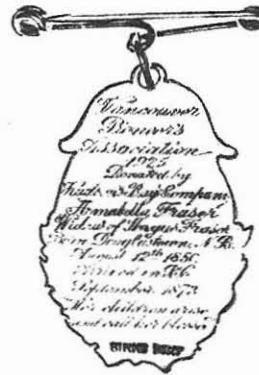 Vancouver
Pioneers
Association
1925
Donated by
Annabella Fraser
Widow of Angus Fraser
Born Douglastown, N.B.
August 12th 1856
Arrived in B.C.
September 1873
"Her children arise
and call her blessed"